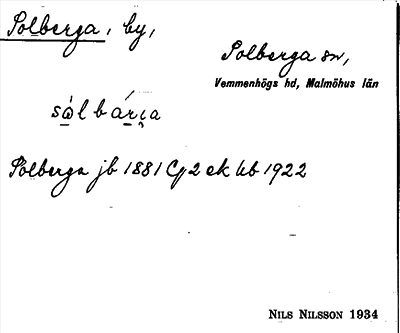 Solberga, by,
Solberga sn,
Vemmenhögs hd, Malmöhus län
Solberga jb 1881 Cf 2 ek kb 1922
NILS NILSSON 1934